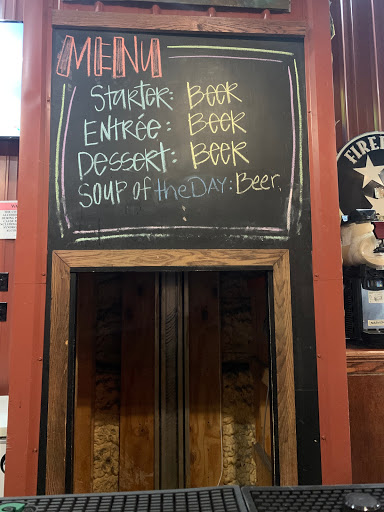 MENU
Starter: Beer
Entrée: Beer
Dessert: Beer
Soup of the Day: Beer.
FIRE